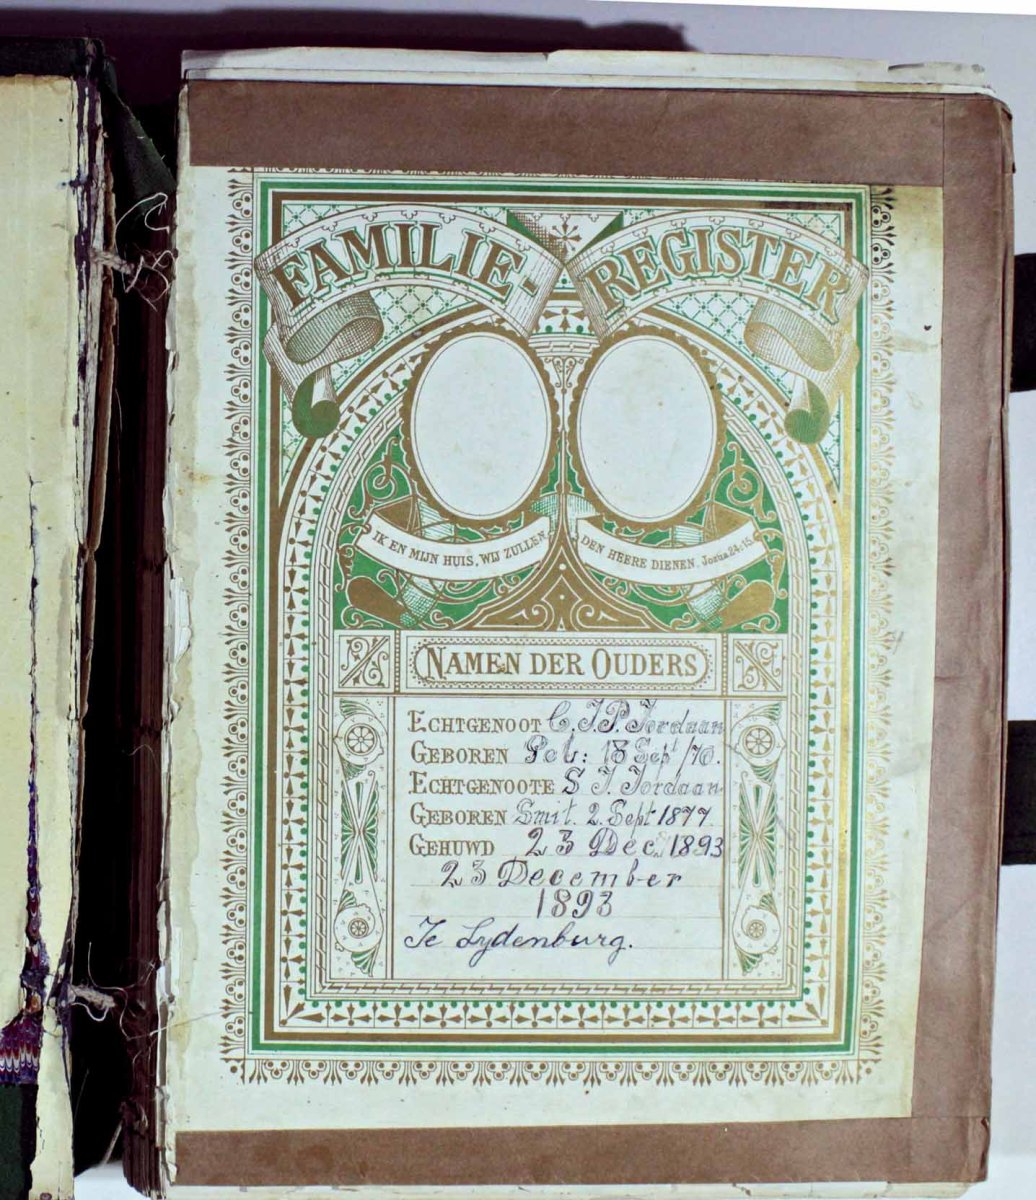 FAMILIE-REGISTER
IK EN MIJN HUIS, WIJ ZULLEN
DEN HEERE DIENEN. Jozua 24:15.
NAMEN DER OUDERS
ECHTGENOOT C. J. P. Jordaan
GEBOREN Pet: 18 Sept /70.
ECHTGENOOTE S J. Jordaan
GEBOREN Smit. 2 Sept 1877.
GEHUWD 23 Dec. 1893
23 December
1893
Te Lydenburg.